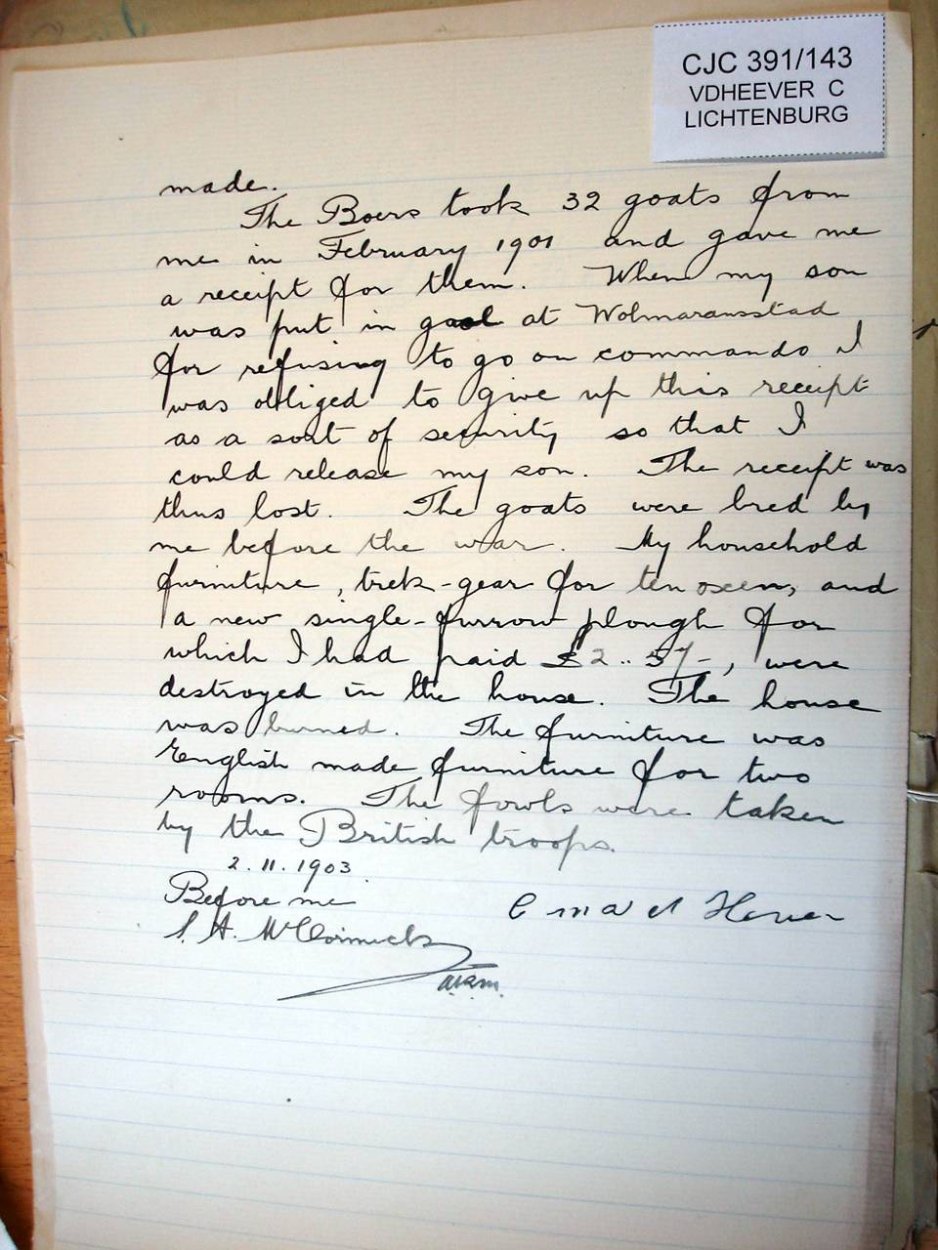 CJC 391/143
VDHEEVER C
LICHTENBURG
made.
The Boers took 32 goats from
me in February 1901 and gave me
a receipt for them. When my son
was put in gaol at Wolmaransstad
for refusing to go on commando I
was obliged to give up this receipt
as a sort of security so that I
could release my son. The receipt was
thus lost. The goats were bred by
me before the war. My household
furniture, trek-gear for ten oxen, and
a new single-furrow plough for
which I had paid £2..5/-, were
destroyed in the house. The house
was burned. The furniture was
English made furniture for two
rooms. The fowls were taken
by the British troops.
2.11.1903
Before me
McCormick